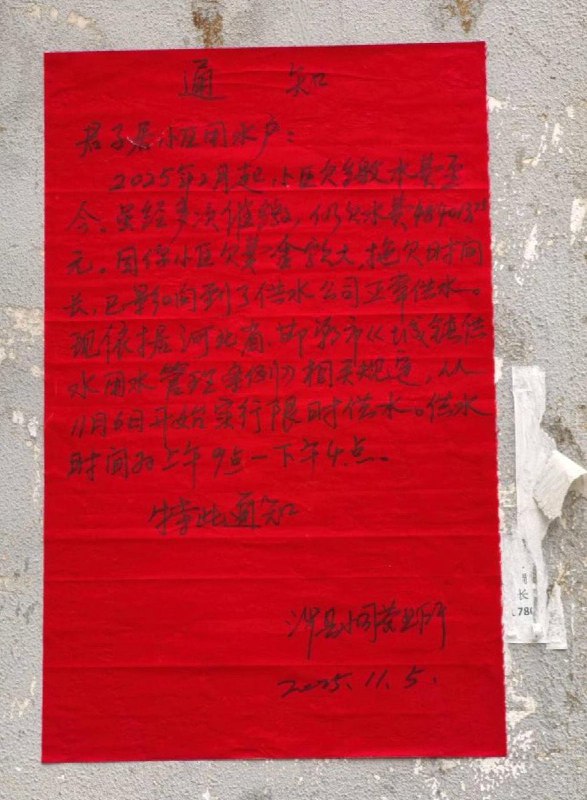 通知
君子居小区用水户：
2025年2月起,小区欠缴水费至
今。虽经多次催缴,仍欠水费
元。因你小区欠费金额大,拖欠时间
长,已影响到了供水公司正常供水。
现依据河北省、邯郸市《城镇供
水用水管理条例》相关规定,从
11月6日开始实行限时供水。供水
时间为上午9点—下午4点。
特此通知
涉县 营业所
2025.11.5.
长
.780